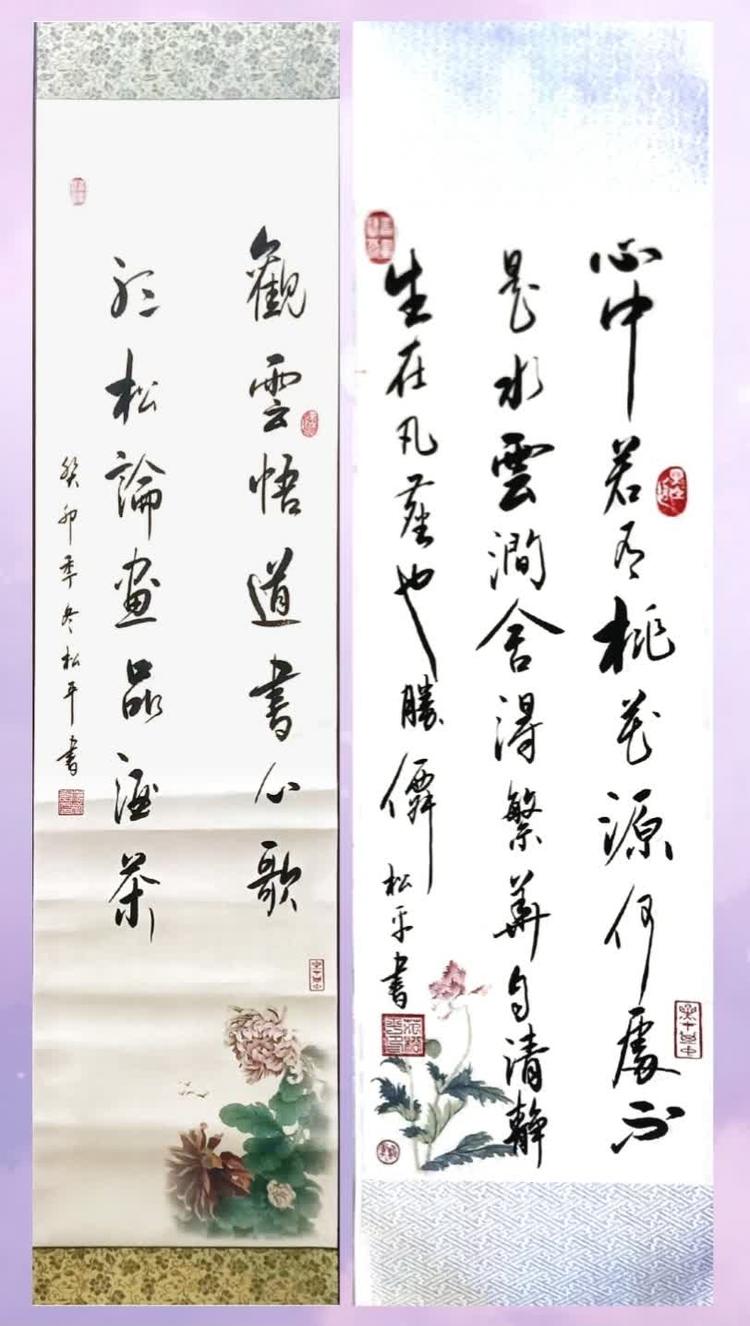 心中若有桃花源何處不
是水雲澗舍得繁華自清靜
生在凡塵也勝僊
松平書
觀雲悟道書心歌
聽松論畫品酒茶
癸卯季冬松平書